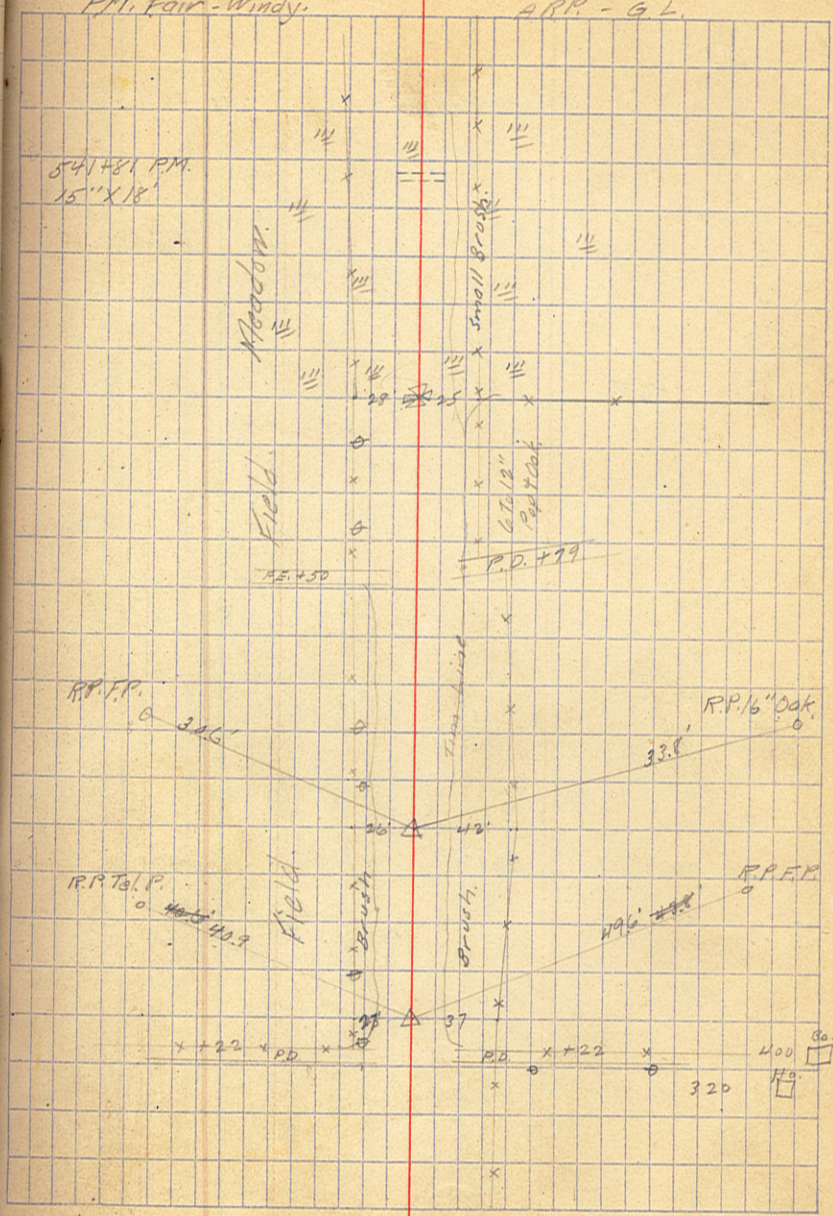 P.M. Fair - Windy.
A.R.P. - G.L.
541+81 P.M.
15" X 18'
Meadow.
Small Brush.
28'
25
Field.
6 To 12"
Pop & Oak
F.E. +50
P.D. +79
R.P. F.P.
R.P. 16" Oak.
33.8'
26'
42'
R.P. Tel. P.
40.9
Field.
Brush
Brush.
R.P. F.P.
49.6'
37
+22
P.D.
P.D.
+22
400
Ba.
320
Ho.